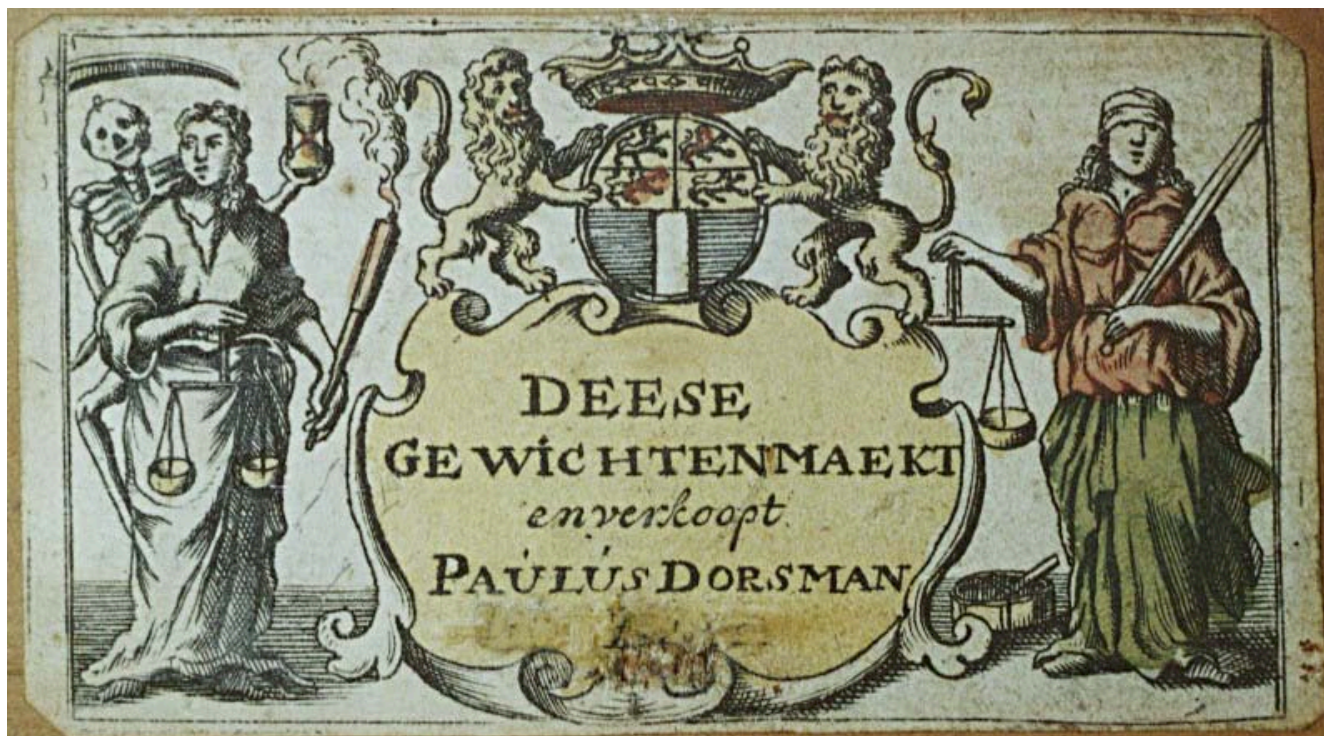 DEESE
GEWICHTEN MAEKT
en verkoopt
PAÚLÚS DORSMAN